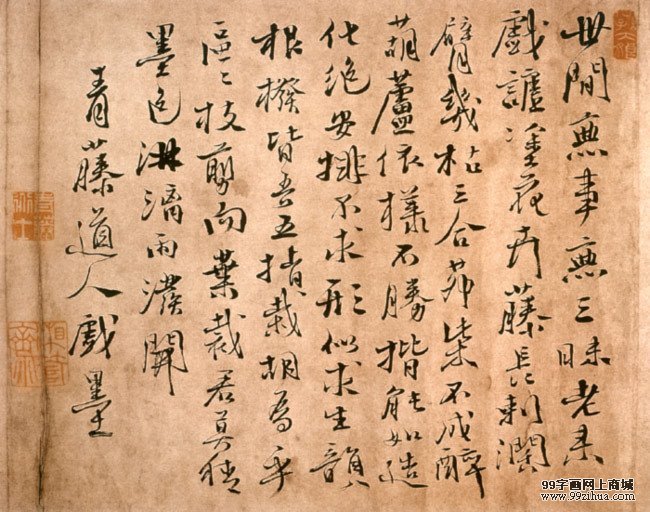 世間無事無三昧老来
戲謔塗花卉藤長刺闊
臂幾枯三合茅柴不成醉
葫蘆依樣不勝揩能如造
化絶安排不求形似求生韻
根撥皆吾五指栽胡為乎
區〻枝剪而葉裁君莫猜
墨色淋漓雨潑開
青藤道人戲墨
99字画网上商城
www.99zihua.com